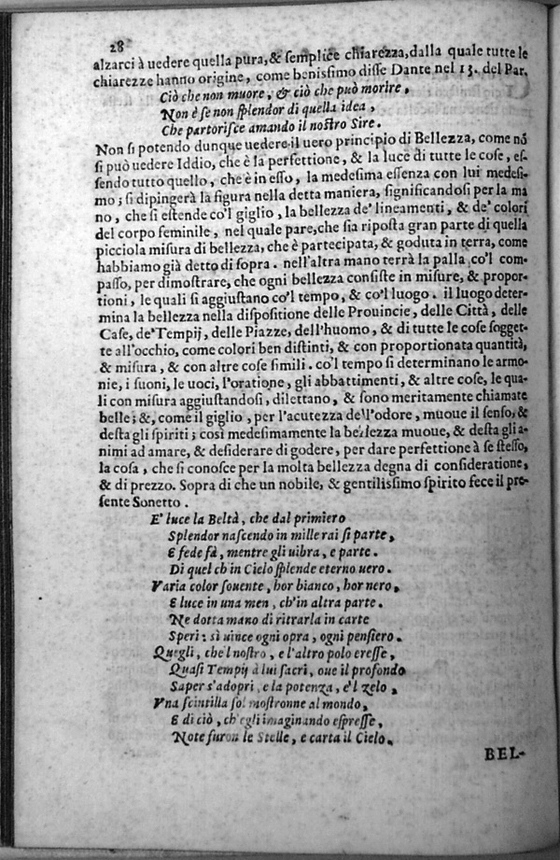 28
alzarci à uedere quella pura, & semplice chiarezza, dalla quale tutte le
chiarezze hanno origine, come benissimo disse Dante nel 13. del Par.
Ciò che non muore, & ciò che può morire,
Non è se non splendor di quella idea,
Che partorisce amando il nostro Sire.
Non si potendo dunque uedere il uero principio di Bellezza, come nõ
si può uedere Iddio, che è la perfettione, & la luce di tutte le cose, es-
sendo tutto quello, che è in esso, la medesima essenza con lui medesi-
mo; si dipingerà la figura nella detta maniera, significandosi per la ma
no, che si estende co'l giglio, la bellezza de' lineamenti, & de' colori
del corpo feminile, nel quale pare, che sia riposta gran parte di quella
picciola misura di bellezza, che è partecipata, & goduta in terra, come
habbiamo già detto di sopra. nell'altra mano terrà la palla co'l com-
passo, per dimostrare, che ogni bellezza consiste in misure, & propor-
tioni, le quali si aggiustano co'l tempo, & co'l luogo. il luogo deter-
mina la bellezza nella dispositione delle Prouincie, delle Città, delle
Case, de' Tempij, delle Piazze, dell'huomo, & di tutte le cose sogget-
te all'occhio, come colori ben distinti, & con proportionata quantità,
& misura, & con altre cose simili. co'l tempo si determinano le armo-
nie, i suoni, le uoci, l'oratione, gli abbattimenti, & altre cose, le qua-
li con misura aggiustandosi, dilettano, & sono meritamente chiamate
belle; &, come il giglio, per l'acutezza dell'odore, muoue il senso, &
desta gli spiriti; così medesimamente la bellezza muoue, & desta gli a-
nimi ad amare, & desiderare di godere, per dare perfettione à se stesso,
la cosa, che si conosce per la molta bellezza degna di consideratione,
& di prezzo. Sopra di che un nobile, & gentilissimo spirito fece il pre-
sente Sonetto.
E' luce la Beltà, che dal primiero
Splendor nascendo in mille rai si parte,
E fede fà, mentre gli uibra, e parte.
Di quel ch in Cielo splende eterno uero.
Varia color souente, hor bianco, hor nero,
E luce in una men, ch'in altra parte.
Ne dotta mano di ritrarla in carte
Speri: sì uince ogni opra, ogni pensiero.
Quegli, che'l nostro, e l'altro polo eresse,
Quasi Tempij à lui sacri, oue il profondo
Saper s'adopri, e la potenza, e'l zelo,
Vna scintilla sol mostronne al mondo,
E di ciò, ch'egli imaginando espresse,
Note furon le Stelle, e carta il Cielo.
BEL-